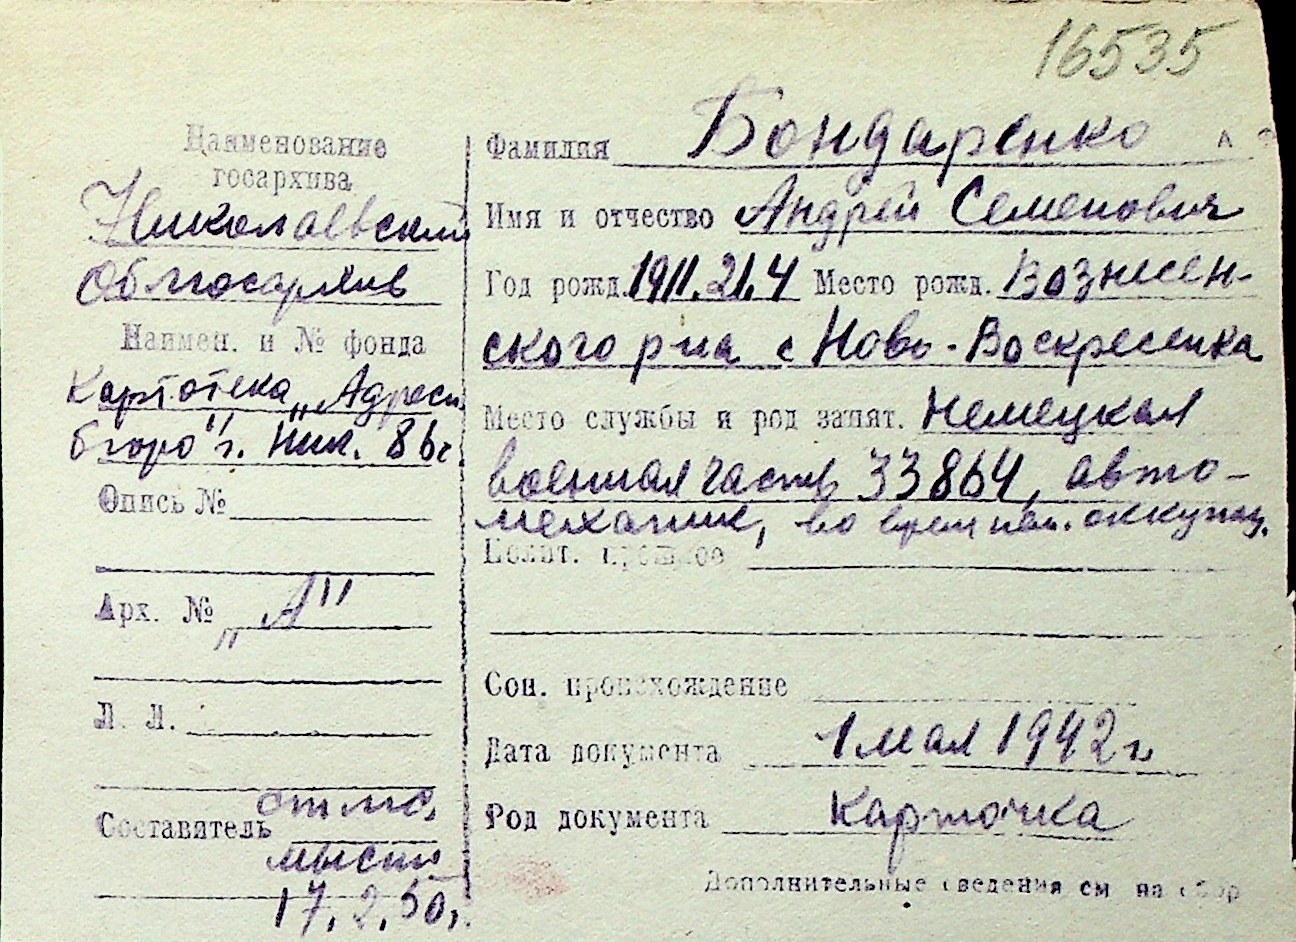 16535
Наименование
госархива
Николаевский
Облгосархив
Наимен. и № фонда
Картотека „Адресн.
бюро" г. Ник. 86 г.
Опись №
Арх. № „А"
Л. Л.
Составитель
17.2.50 г.
Фамилия Бондаренко
Имя и отчество Андрей Семенович
Год рожд. 1911.21.4 Место рожд. Вознесен-
ского р-на с Ново-Воскресенка
Место службы и род занят. Немецкая
военная часть 33864, авто-
механик, во время нем. оккупац.
Полит. прошлое
Соц. происхождение
Дата документа 1 мая 1942 г.
Род документа карточка
Дополнительные сведения см на обор